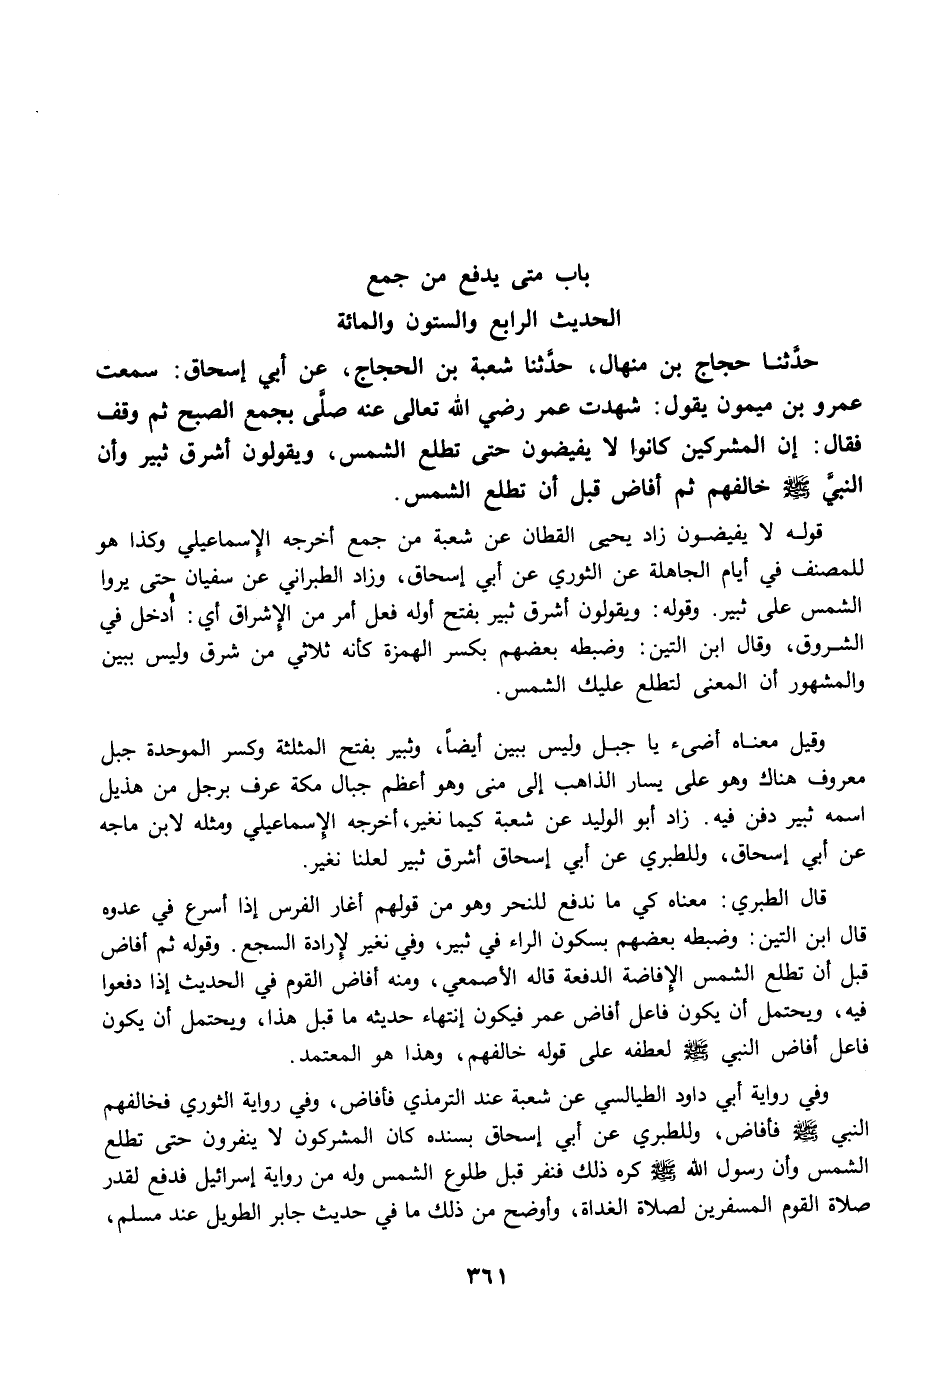 باب متى يدفع من جمع
الحديث الرابع والستون والمائة
حدَّثنـا حجاج بن منهال، حدَّثنا شعبة بن الحجاج، عن أبي إسحاق: سمعت
عمرو بن ميمون يقول: شهدت عمر رضي الله تعالى عنه صلَّى بجمع الصبح ثم وقف
فقال: إن المشركين كانوا لا يفيضون حتى تطلع الشمس، ويقولون أشرق ثبير وأن
النبيَّ ﷺ خالفهم ثم أفاض قبل أن تطلع الشمس.
قولـه لا يفيضـون زاد يحيى القطان عن شعبة من جمع أخرجه الإسماعيلي وكذا هو
للمصنف في أيام الجاهلة عن الثوري عن أبي إسحاق، وزاد الطبراني عن سفيان حتى يروا
الشمس على ثبير. وقوله: ويقولون أشرق ثبير بفتح أوله فعل أمر من الإشراق أي: أدخل في
الشـروق، وقال ابن التين: وضبطه بعضهم بكسر الهمزة كأنه ثلاثي من شرق وليس ببين
والمشهور أن المعنى لتطلع عليك الشمس.
وقيل معنـاه أضىء يا جبـل وليس ببين أيضاً، وثبير بفتح المثلثة وكسر الموحدة جبل
معروف هناك وهو على يسار الذاهب إلى منى وهو أعظم جبال مكة عرف برجل من هذيل
اسمه ثبير دفن فيه. زاد أبو الوليد عن شعبة كيما نغير، أخرجه الإسماعيلي ومثله لابن ماجه
عن أبي إسحاق، وللطبري عن أبي إسحاق أشرق ثبير لعلنا نغير.
قال الطبري: معناه كي ما ندفع للنحر وهو من قولهم أغار الفرس إذا أسرع في عدوه
قال ابن التين: وضبطه بعضهم بسكون الراء في ثبير، وفي نغير لإرادة السجع. وقوله ثم أفاض
قبل أن تطلع الشمس الإفاضة الدفعة قاله الأصمعي، ومنه أفاض القوم في الحديث إذا دفعوا
فيه، ويحتمل أن يكون فاعل أفاض عمر فيكون إنتهاء حديثه ما قبل هذا، ويحتمل أن يكون
فاعل أفاض النبي ﷺ لعطفه على قوله خالفهم، وهذا هو المعتمد.
وفي رواية أبي داود الطيالسي عن شعبة عند الترمذي فأفاض، وفي رواية الثوري فخالفهم
النبي ﷺ فأفاض، وللطبري عن أبي إسحاق بسنده كان المشركون لا ينفرون حتى تطلع
الشمس وأن رسول الله ﷺ كره ذلك فنفر قبل طلوع الشمس وله من رواية إسرائيل فدفع لقدر
صلاة القوم المسفرين لصلاة الغداة، وأوضح من ذلك ما في حديث جابر الطويل عند مسلم،
٣٦١